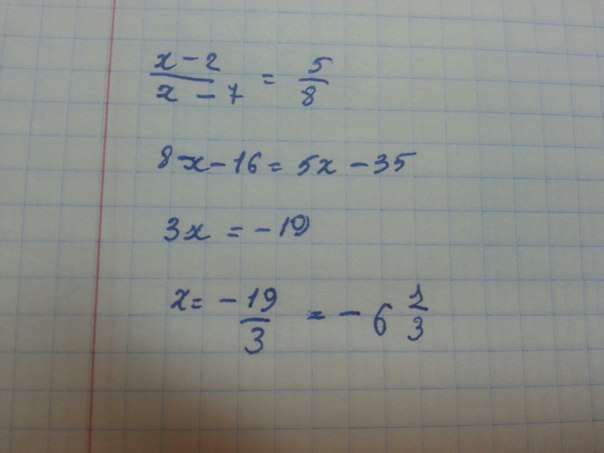 x-2/x-7 = 5/8
8x-16=5x-35
3x=-19
x=-19/3=-6 1/3